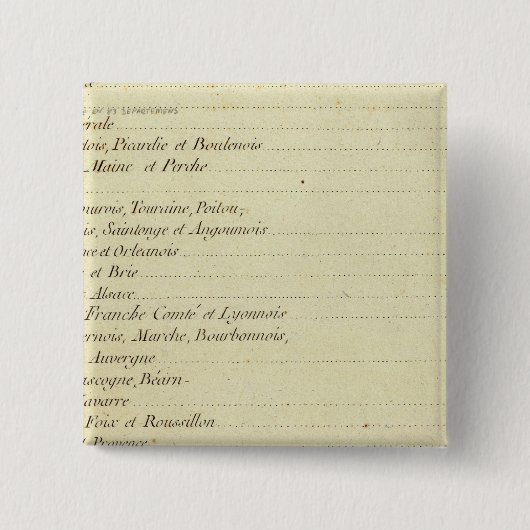 EN 83 DEPARTEMENS
érale
tois, Picardie et Boulenois
Maine et Perche
umurois, Touraine, Poitou,
is, Saintonge et Angoumois
nce et Orleanois
et Brie
Alsace
Franche Comté et Lyonnois
ernois, Marche, Bourbonnois,
Auvergne
ascogne, Béarn-
Navarre
Foix et Roussillon
Provence